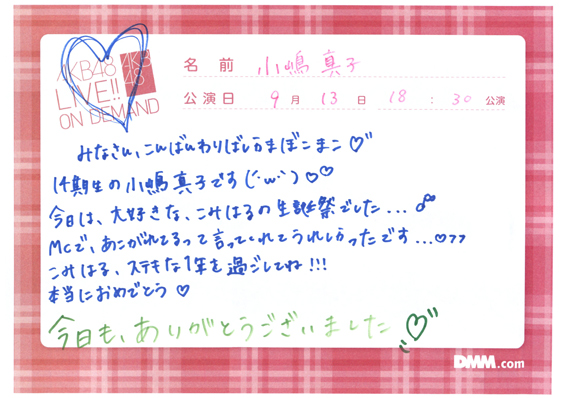 AKB48
LIVE!!
ON DEMAND
AKB
48
名前 小嶋真子
公演日 9月13日 18:30公演
みなさん、こんばんわりばしかまぼこまこ♡"
14期生の小嶋真子です(´・ω・`)♡♡
今日は、大好きな、こみはるの生誕祭でした...
MCで、あこがれてるって言ってくれてうれしかったです...♡
こみはる、ステキな1年を過ごしてね!!!
本当におめでとう♡
今日も、ありがとうございました♡"
DMM.com